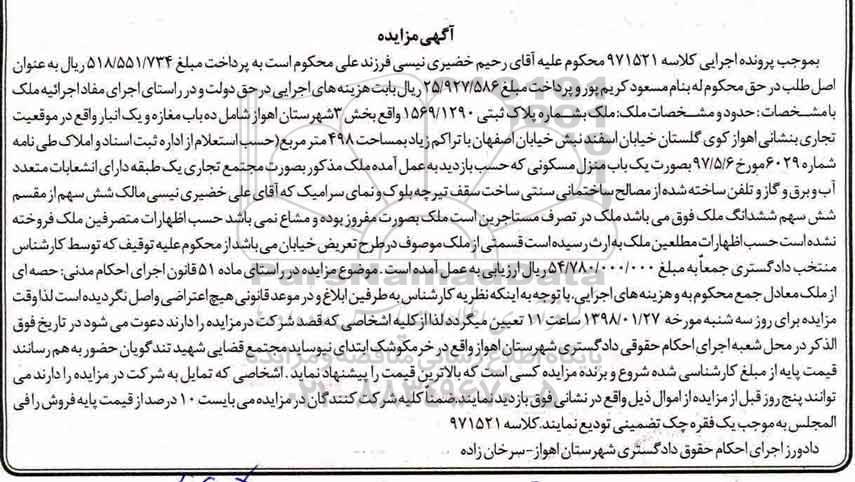 آگهی مزایده
بموجب پرونده اجرایی کلاسه ۹۷۱۵۲۱ محکوم علیه آقای رحیم خضیری نیسی فرزند علی محکوم است به پرداخت مبلغ ۵۱۸/۵۵۱/۷۳۴ ریال به عنوان
اصل طلب در حق محکوم له بنام مسعود کریم پور و پرداخت مبلغ ۲۵/۹۲۷/۵۸۶ ریال بابت هزینه های اجرایی در حق دولت و در راستای اجرای مفاد اجرائیه ملک
با مشخصات : حدود و مشخصات ملک: ملک بشماره پلاک ثبتی ۱۵۶۹/۱۲۹۰ واقع بخش ۳ شهرستان اهواز شامل ده باب مغازه و یک انبار واقع در موقعیت
تجاری بنشانی اهواز کوی گلستان خیابان اسفند نبش خیابان اصفهان با تراکم زیاد بمساحت ۴۹۸ متر مربع (حسب استعلام از اداره ثبت اسناد و املاک طی نامه
شماره ۶۰۲۹ مورخ ۹۷/۵/۶ بصورت یک باب منزل مسکونی که حسب بازدید به عمل آمده ملک مذکور بصورت مجتمع تجاری یک طبقه دارای انشعابات متعدد
آب و برق و گاز و تلفن ساخته شده از مصالح ساختمانی سنتی ساخت سقف تیرچه بلوک و نمای سرامیک که آقای علی خضیری نیسی مالک شش سهم از مقسم
شش سهم ششدانگ ملک فوق می باشد ملک در تصرف مستاجرین است ملک بصورت مفروز بوده و مشاع نمی باشد حسب اظهارات متصرفین ملک فروخته
نشده است حسب اظهارات مطلعین ملک به ارث رسیده است قسمتی از ملک موصوف در طرح تعریض خیابان می باشد از محکوم علیه توقیف که توسط کارشناس
منتخب دادگستری جمعاً به مبلغ ۵۴/۷۸۰/۰۰۰/۰۰۰ ریال ارزیابی به عمل آمده است . موضوع مزایده در راستای ماده ۵۱ قانون اجرای احکام مدنی: حصه ای
از ملک معادل جمع محکوم به و هزینه های اجرایی، با توجه به اینکه نظریه کارشناس به طرفین ابلاغ و در موعد قانونی هیچ اعتراضی واصل نگردیده است لذا وقت
مزایده برای روز سه شنبه مورخه ۱۳۹۸/۰۱/۲۷ ساعت ۱۱ تعیین میگردد لذا از کلیه اشخاصی که قصد شرکت در مزایده را دارند دعوت می شود در تاریخ فوق
الذکر در محل شعبه اجرای احکام حقوقی دادگستری شهرستان اهواز واقع در خرمکوشک ابتدای نیوساید مجتمع قضایی شهید تندگویان حضور به هم رسانند
قیمت پایه از مبلغ کارشناسی شده شروع و برنده مزایده کسی است که بالاترین قیمت را پیشنهاد نماید . اشخاصی که تمایل به شرکت در مزایده را دارند می
توانند پنج روز قبل از مزایده از اموال ذیل واقع در نشانی فوق بازدید نمایند ضمناً کلیه شرکت کنندگان در مزایده می بایست ۱۰ درصد از قیمت پایه فروش را فی
المجلس به موجب یک فقره چک تضمینی تودیع نمایند. کلاسه ۹۷۱۵۲۱
دادورز اجرای احکام حقوق دادگستری شهرستان اهواز-سرخان زاده
ParsNamadData
پایگاه اطلاع رسانی مناقصه و مزایده